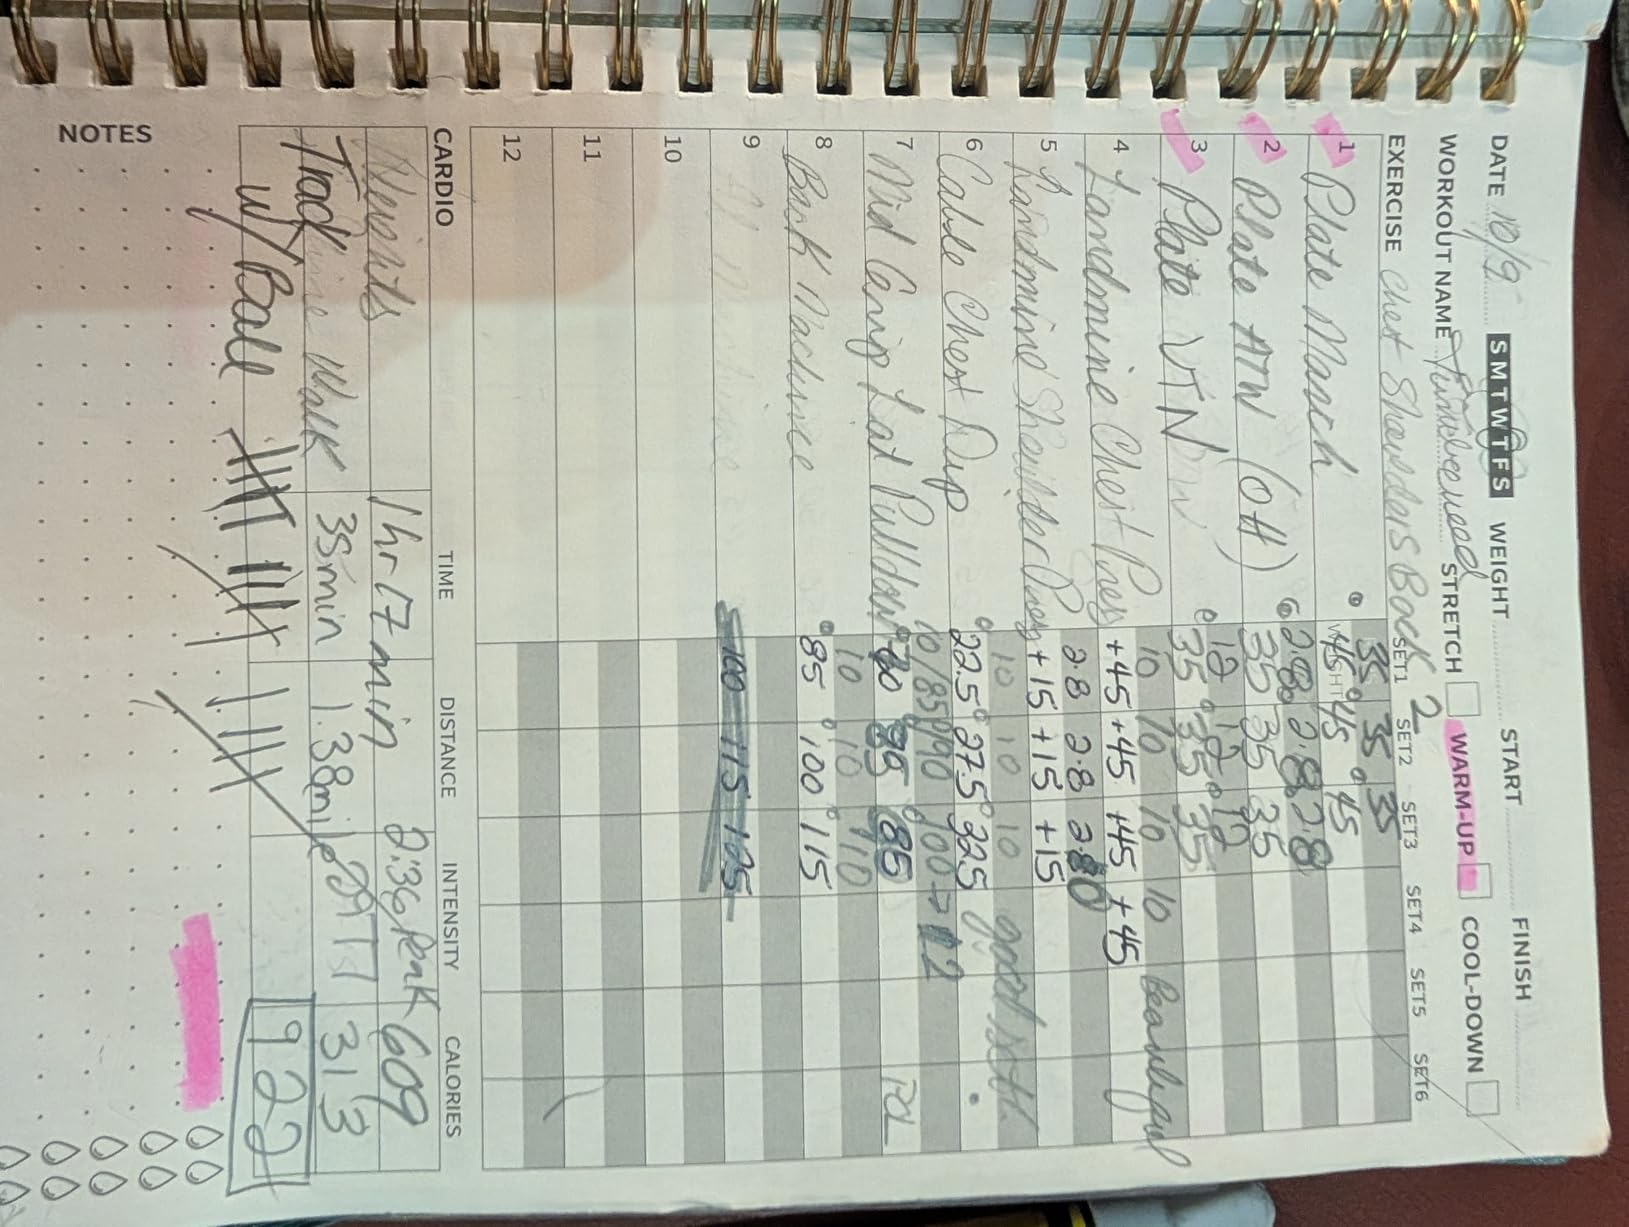 DATE 10/9 S M T W T F S WEIGHT START FINISH
WORKOUT NAME STRETCH WARM-UP COOL-DOWN
EXERCISE Chest Shoulders Back 2 SET1 SET2 SET3 SET4 SET5 SET6
35 35 35
1 Plate March 45 45 45
2.8 2.8 2.8
2 Plate ATW (OH) 35 35 35
12 12 12
3 Plate 35 35 35
10 10 10 10 Beautiful
4 Landmine Chest Press +45 +45 +45 +45
2.8 2.8 2.80
5 Landmine Shoulder Press +15 +15 +15
10 10 10 good
6 Cable Chest 22.5 27.5 22.5
10/85 90 100 → 12
7 Mid Grip Lat Pulldown 85 85
10 10 10
8 Back Machine 85 100 115
9 100 115 125
10
11
12
CARDIO TIME DISTANCE INTENSITY CALORIES
Weights 1hr 17min 2:36 peak 609
Track Walk 35min 1.38mile 313
w/ Ball 922
NOTES